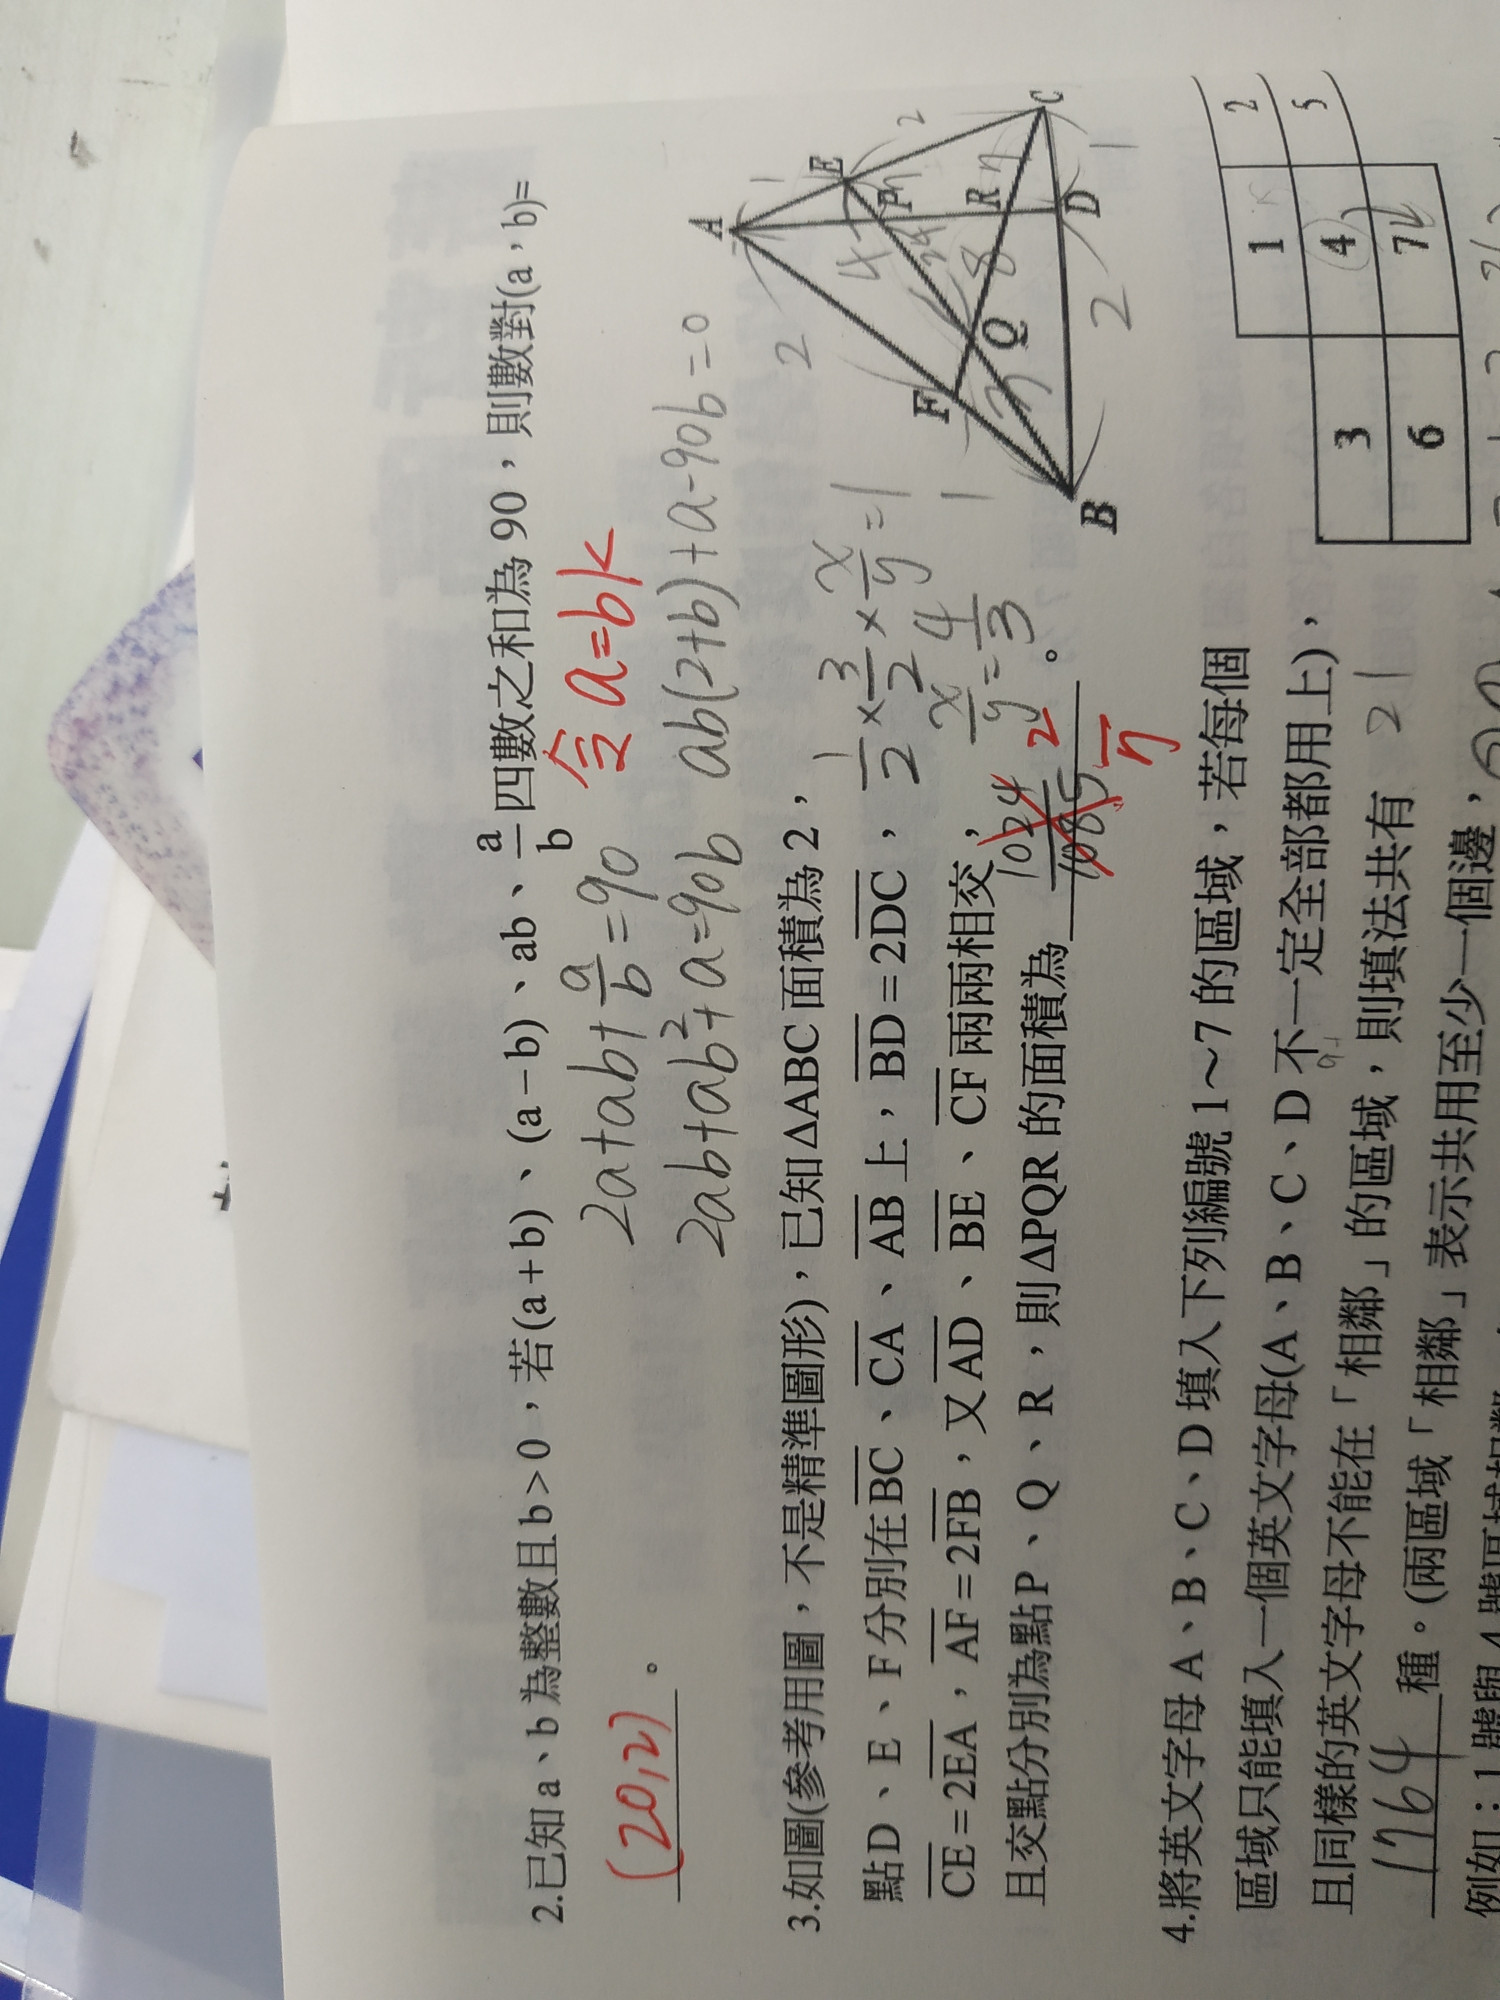 2.已知a、b為整數且b>0，若(a+b)、(a−b)、ab、a/b 四數之和為90，則數對(a，b)=
(20,2)。
2a+ab+a/b=90
令 a=bk
2ab+ab²+a=90b
ab(2+b)+a-90b=0
3.如圖(參考用圖，不是精準圖形)，已知ΔABC面積為2，
點D、E、F分別在BC、CA、AB上，BD=2DC，
CE=2EA，AF=2FB，又AD、BE、CF兩兩相交，
且交點分別為點P、Q、R，則ΔPQR的面積為 2/7 。
1/2×3/2×x/y=1
x/y=4/3
A
B
C
D
E
F
P
Q
R
2
1
1
2
2
1
4
3
8
4.將英文字母A、B、C、D填入下列編號1～7的區域，若每個
區域只能填入一個英文字母(A、B、C、D不一定全部都用上)，
且同樣的英文字母不能在「相鄰」的區域，則填法共有
1764種。(兩區域「相鄰」表示共用至少一個邊，
21
1 2
3 4 5
6 7